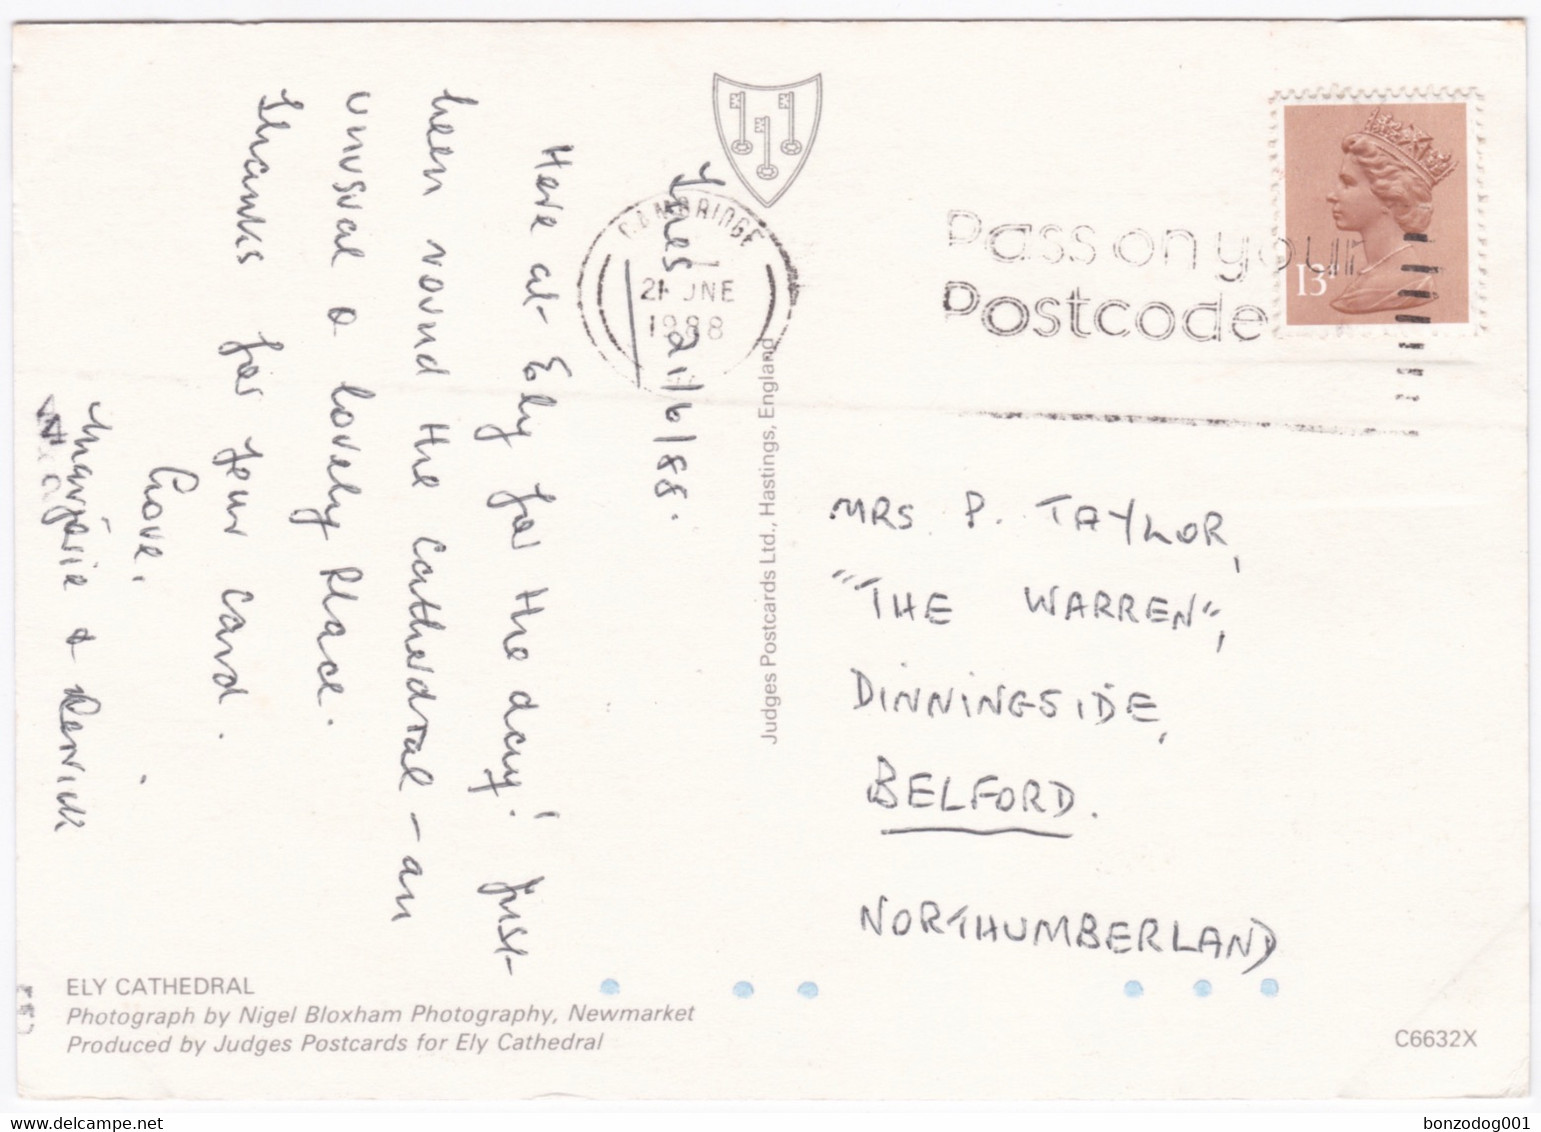 Tues 21/6/88.
Here at Ely for the day! Just
been round the Cathedral - an
unusual & lovely Place.
Thanks for your card.
Love,
Marjorie & Derrick
CAMBRIDGE
21 JNE
1988
Pass on your
Postcode
13
MRS P. TAYLOR,
"THE WARREN",
DINNINGSIDE,
BELFORD.
NORTHUMBERLAND
Judges Postcards Ltd., Hastings, England
ELY CATHEDRAL
Photograph by Nigel Bloxham Photography, Newmarket
Produced by Judges Postcards for Ely Cathedral
C6632X
www.delcampe.net
bonzodog001